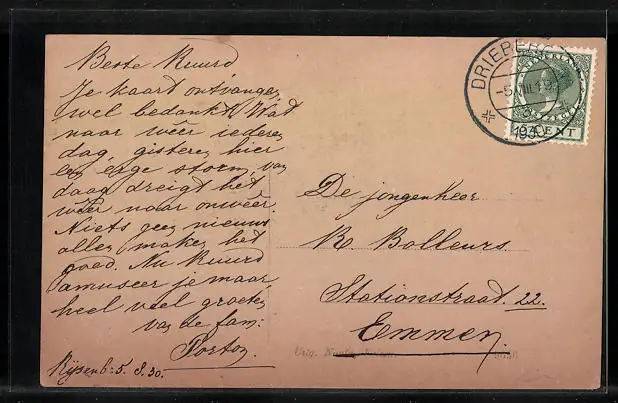 Beste Ruurd
Je kaart ontvangen,
wel bedankt. Wat
naar wéér iederen
dag, gisteren hier
een erge storm, van
daag dreigt het
wéér naar onweer.
Niets geen nieuws
alles maken het
goed. Nu Ruurd
amuseer je maar,
heel veel groeten
van de fam:
Rijsenb: 5. 8. 30.
De jongenheer
R. Bolleurs.
Stationstraat 22.
Emmen.
DRIEBERGEN
NEDERLAND
CENT